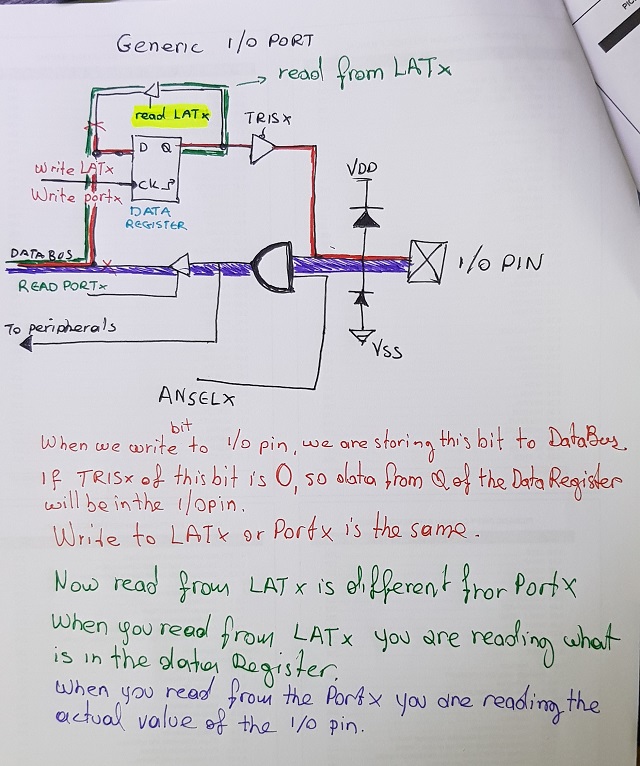 Generic I/O PORT
read from LATx
read LATx
TRISX
D Q
Write LATx
Write portx
CK
DATA
REGISTER
VDD
DATABUS
I/O PIN
READ PORTx
To peripherals
VSS
ANSELX
bit
When we write to I/O pin, we are storing this bit to DataBus
If TRISx of this bit is 0, so data from Q of the Data Register
will be in the I/O pin.
Write to LATx or Portx is the same.
Now read from LATx is different fror PortX
When you read from LATx you are reading what
is in the data Register.
When you read from the Portx you are reading the
actual value of the I/O pin.